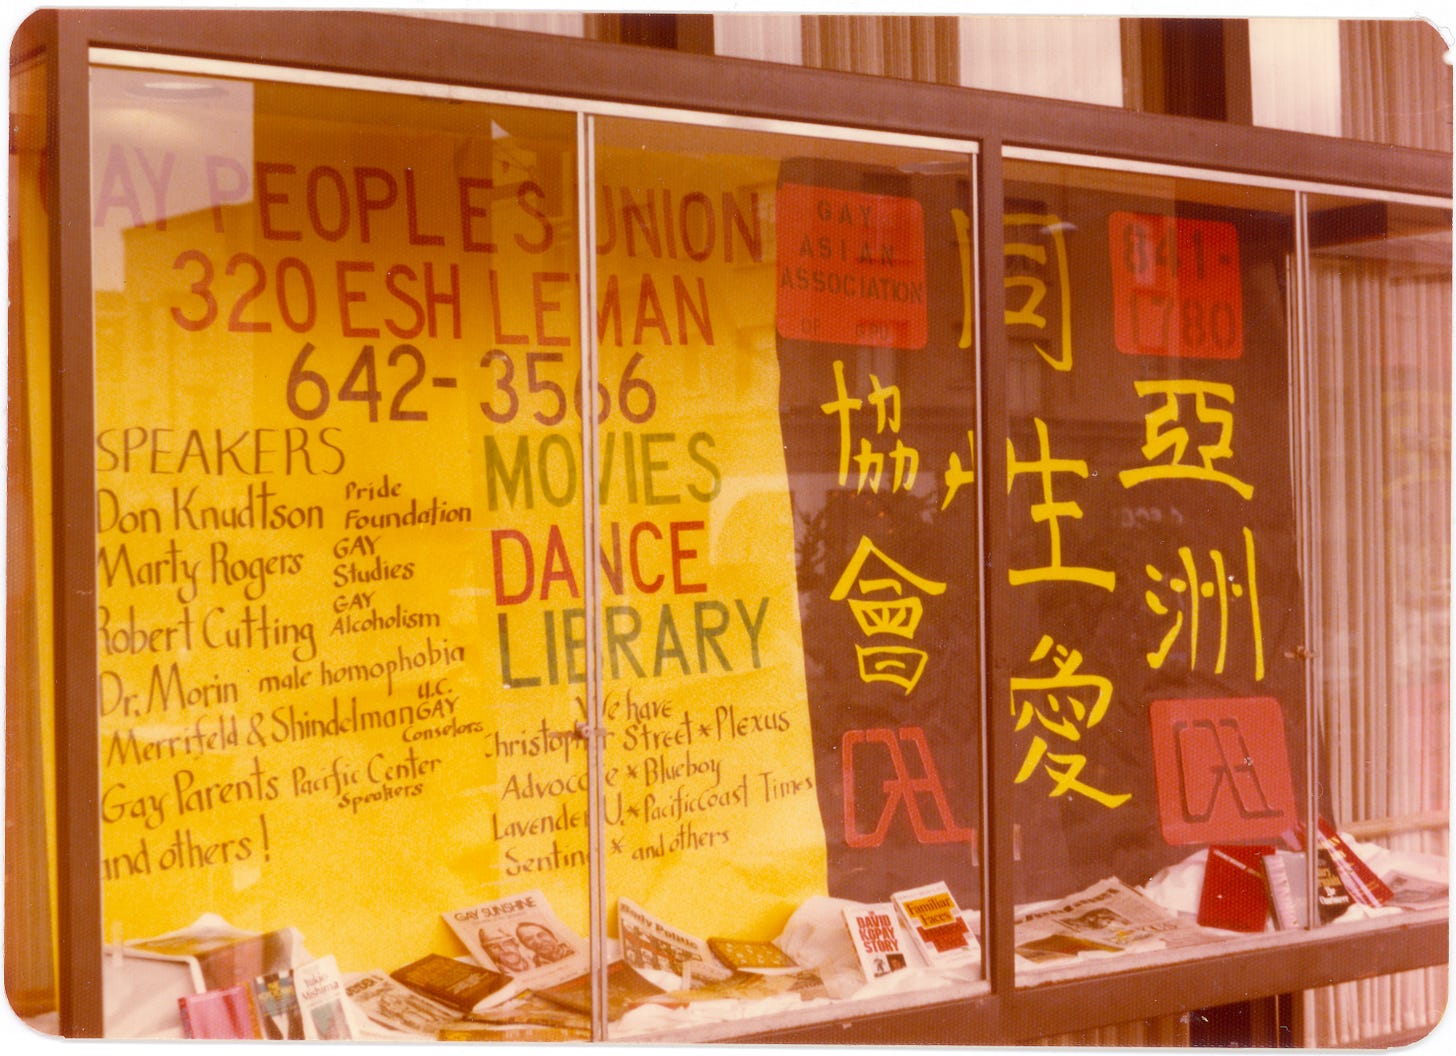 GAY PEOPLE'S UNION
320 ESHLEMAN
642-3566
SPEAKERS
Don Knudtson Pride Foundation
Marty Rogers GAY Studies
Robert Cutting GAY Alcoholism
Dr. Morin male homophobia
Merrifeld & Shindelman U.C. GAY Conselors
Gay Parents Pacific Center Speakers
and others!
MOVIES
DANCE
LIBRARY
We have
Christopher Street * Plexus
Advocate * Blueboy
Lavender U. * Pacific Coast Times
Sentinel * and others
GAY
ASIAN
ASSOCIATION
OF GPU
841-
1780
亞洲
同性愛
協會
GAY SUNSHINE
Body Politic
The
DAVID
KOPAY
STORY
Familiar
Faces
Yukio
Mishima